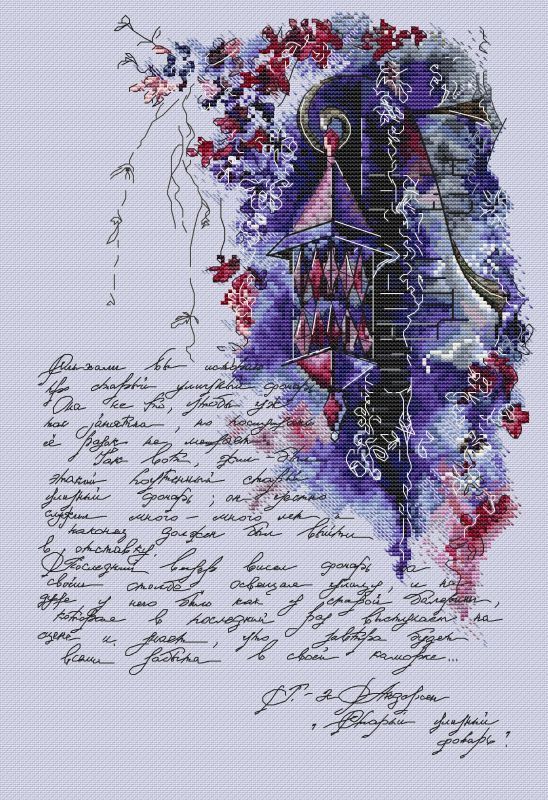 Слыхали вы историю
про старый уличный фонарь
Она не то, чтобы уж
так занятна, но послушать
её разок не мешает.
Так вот, жил-был
этакий почтенный старый
уличный фонарь; он честно
служил много-много лет и
наконец должен был выйти
в отставку.
Последний вечер висел фонарь на
своём столбе освещая улицу, и на
душе у него было как у старой балерины,
которая в последний раз выступает на
сцене и знает, что завтра будет
всеми забыта в своей каморке...
Г.-Х Андерсен
"Старый уличный
фонарь".